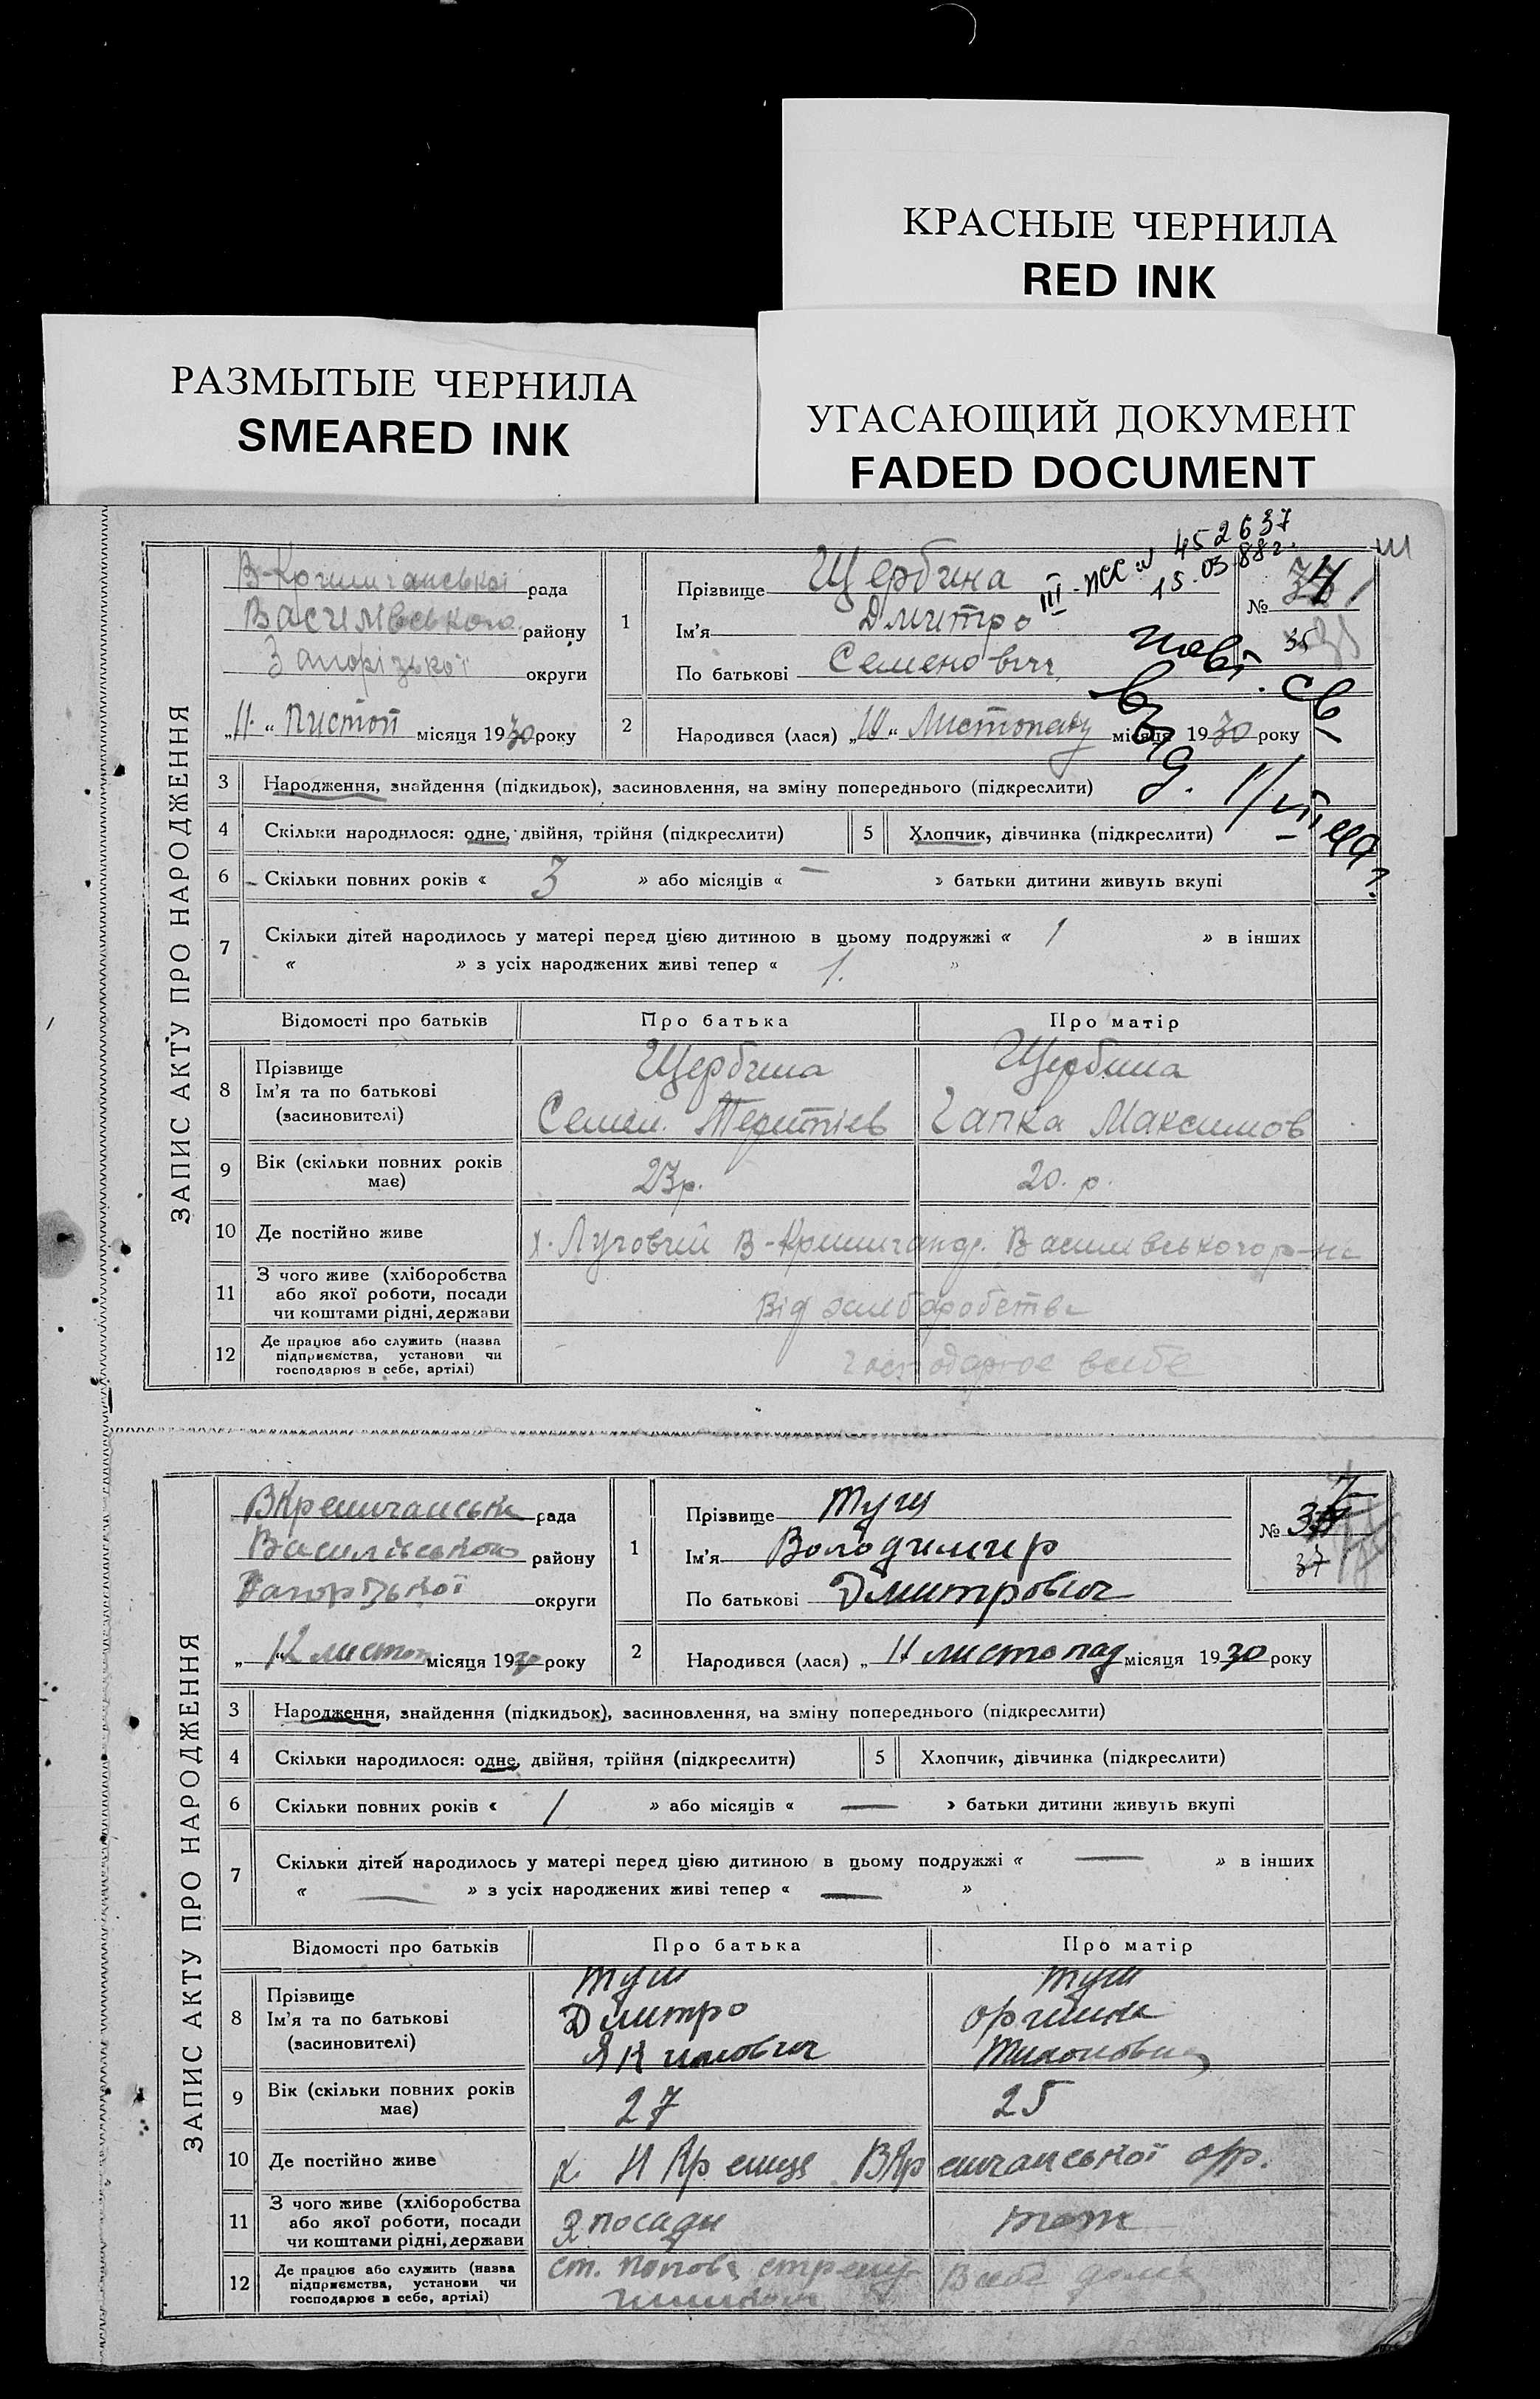 КРАСНЫЕ ЧЕРНИЛА
RED INK
РАЗМЫТЫЕ ЧЕРНИЛА
SMEARED INK
УГАСАЮЩИЙ ДОКУМЕНТ
FADED DOCUMENT
ЗАПИС АКТУ ПРО НАРОДЖЕННЯ
рада
Василівського району
Запорізької округи
„11“ Листоп місяця 1930 року
1
Прізвище Щербина
Ім'я Дмитро
По батькові Семенович
III-ЖС № 452637
15.03.88г.
№
35
2
Народився (лася) „10“ Листопаду місяця 1930 року
3 Народження, знайдення (підкидьок), засиновлення, на зміну попереднього (підкреслити)
4 Скільки народилося: одне, двійня, трійня (підкреслити) 5 Хлопчик, дівчинка (підкреслити)
6 Скільки повних років « 3 » або місяців « — » батьки дитини живуть вкупі
7 Скільки дітей народилось у матері перед цією дитиною в цьому подружжі « 1 » в інших
« » з усіх народжених живі тепер « 1. »
Відомості про батьків Про батька Про матір
8 Прізвище
Ім'я та по батькові
(засиновителі)
Щербина
Семен. Терентіев
Щербина
Гапка Максимов
9 Вік (скільки повних років має) 23р. 20. р.
10 Де постійно живе х. Луговий Василівського р-на
11 З чого живе (хліборобства
або якої роботи, посади
чи коштами рідні, держави
Від хліборобства
12 Де працює або служить (назва
підприємства, установи чи
господарює в себе, артілі)
господарює всебе
ЗАПИС АКТУ ПРО НАРОДЖЕННЯ
рада
Василівського району
округи
„12“ листоп місяця 1930 року
1
Прізвище Туш
Ім'я Володимир
По батькові Дмитрович
№
37
2
Народився (лася) „11 листопад місяця 1930 року
3 Народження, знайдення (підкидьок), засиновлення, на зміну попереднього (підкреслити)
4 Скільки народилося: одне, двійня, трійня (підкреслити) 5 Хлопчик, дівчинка (підкреслити)
6 Скільки повних років « 1 » або місяців « — » батьки дитини живуть вкупі
7 Скільки дітей народилось у матері перед цією дитиною в цьому подружжі « — » в інших
« — » з усіх народжених живі тепер « — »
Відомості про батьків Про батька Про матір
8 Прізвище
Ім'я та по батькові
(засиновителі)
Туш
Дмитро
Якимович
Туш
9 Вік (скільки повних років має) 27 25
10 Де постійно живе х.
11 З чого живе (хліборобства
або якої роботи, посади
чи коштами рідні, держави
З посади
тож
12 Де працює або служить (назва
підприємства, установи чи
господарює в себе, артілі)
ст. Попова
Всебе дома